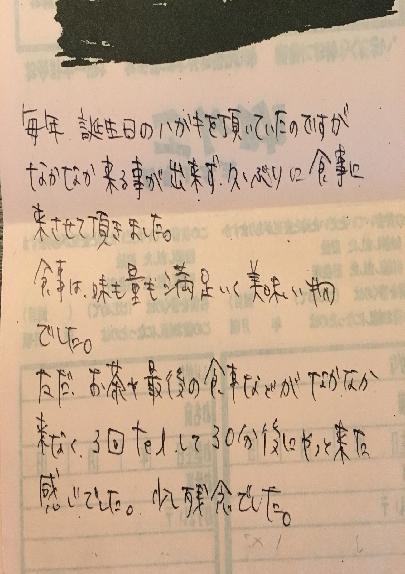 毎年、誕生日のハガキを頂いていたのですが
なかなか来る事が出来ず、久しぶりに食事に
来させて頂きました。
食事は、味も量も満足いく美味しい物
でした。
ただ、お茶や最後の食事などがなかなか
来なく、3回たして30分後にやっと来た
感じでした。少し残念でした。